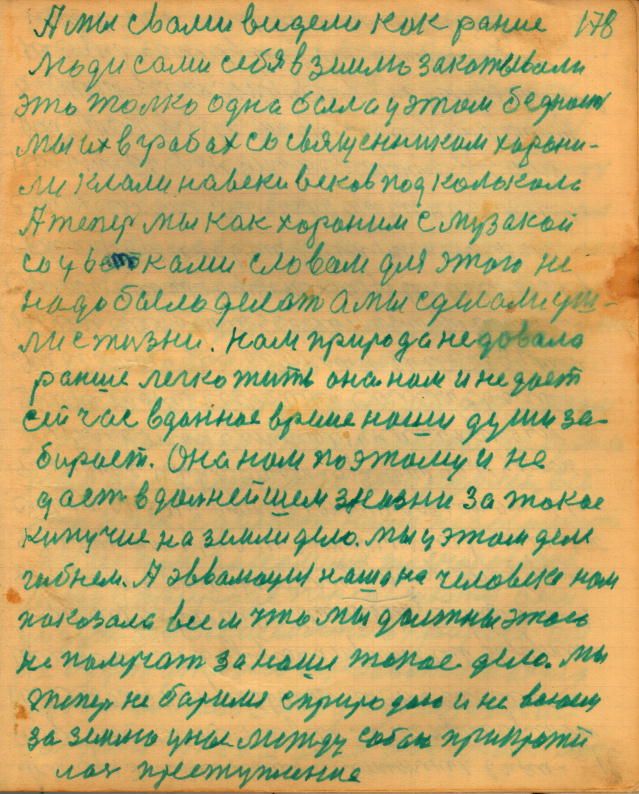 А мы свами видели как ранше 178
люди сами себя в землю закапывали
это толко одна была у этом бедност
мы их в грабах со священником хорони-
ли клали на веки веков под колокола
А тепер мы как хороним с музакой
со цветками словам для этого не
надо было делат а мы сделали уш-
ли с жизни. нам природа не довала
ранше легко жить она нам и не дает
сей час вданное време наши души за-
бирает. Она нам поэтому и не
дает в далнейшем жизни за такое
кипучие на земли дело. мы у этом деле
гибнем. А эввалюция наша на человеке нам
показала всем что мы должны этого
не получат за наши такое дело. мы
тепер не баримся с природаю и не воюем
за землю у нас между собой прикрати
лос преступление